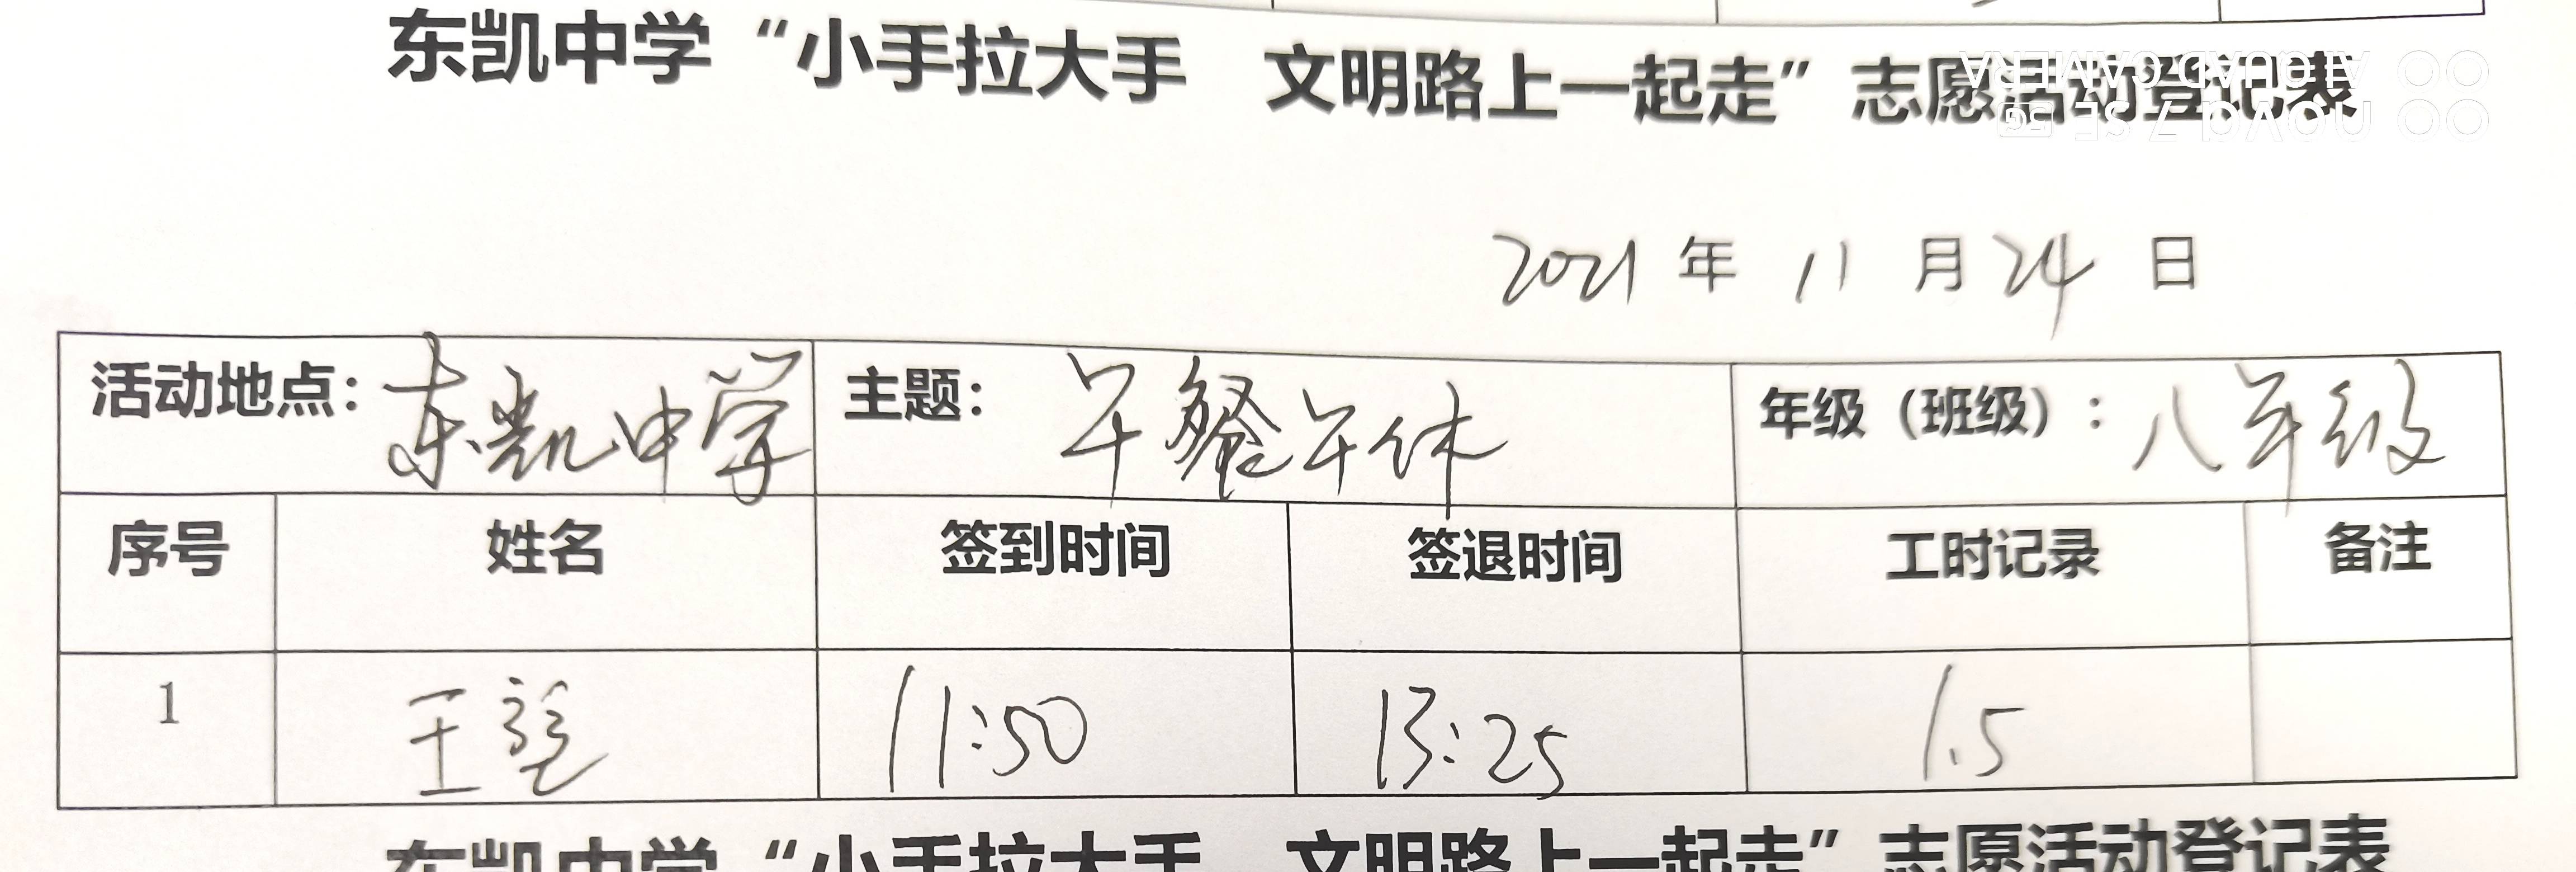 东凯中学“小手拉大手 文明路上一起走”志愿活动登记表
nova 7 SE 5G
AI QUAD CAMERA
2021 年 11 月 24 日
活动地点：东凯中学 主题：午餐午休 年级（班级）：八年级
序号 姓名 签到时间 签退时间 工时记录 备注
1 王 11:50 13:25 1.5
东凯中学“小手拉大手 文明路上一起走”志愿活动登记表